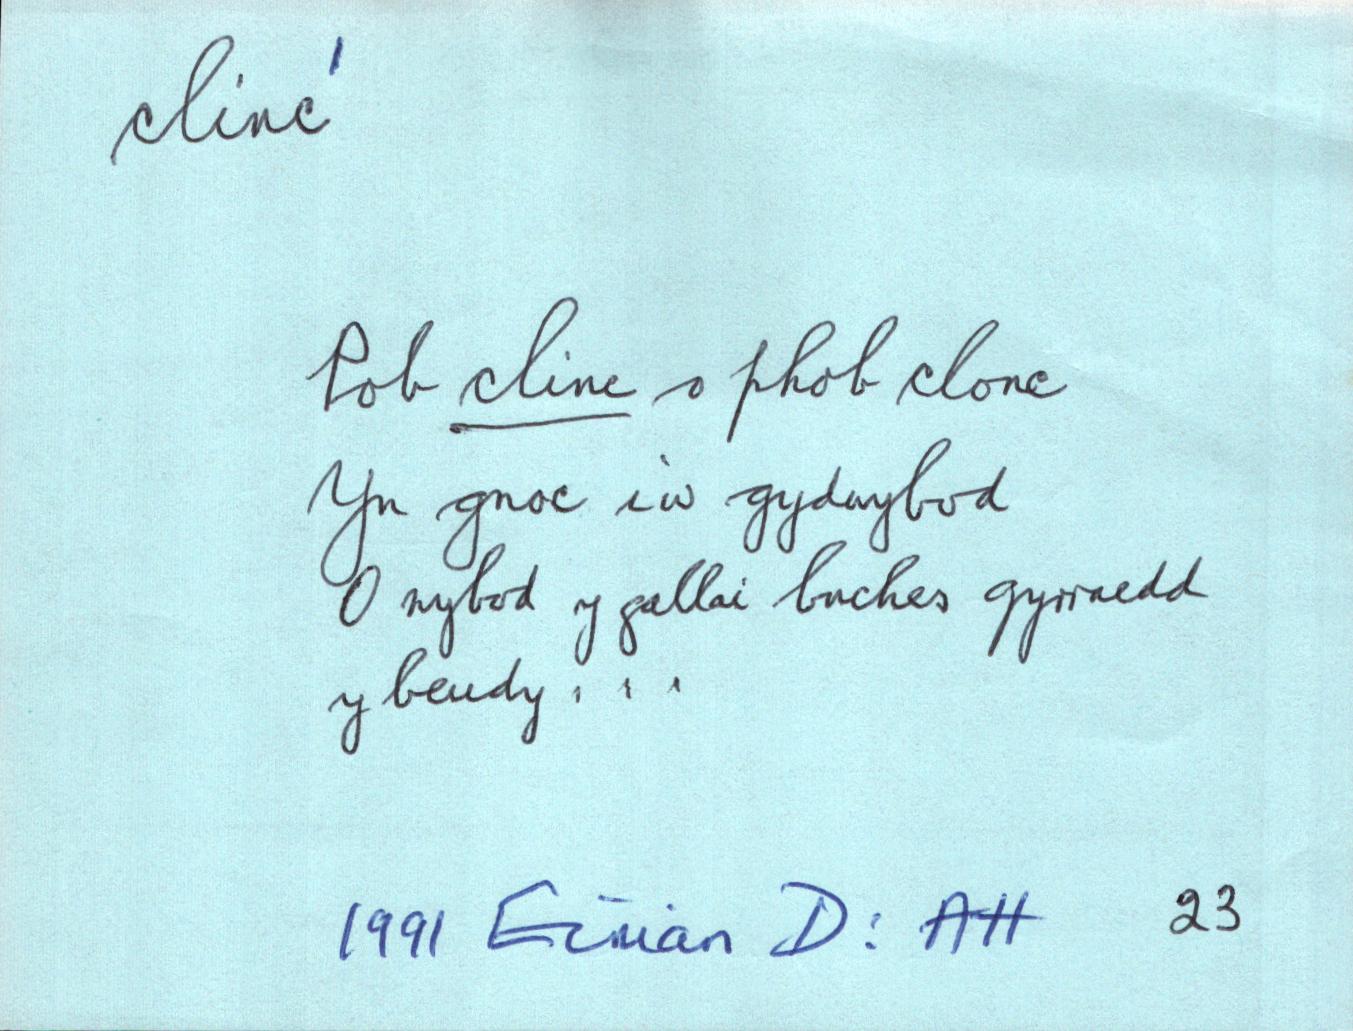 clinc'
Pob clinc o phob clonc
Yn gnoc iw gydwybod
O nybod y gallai buches gyrraedd
y beudy...
1991 Eirian D: AH 23